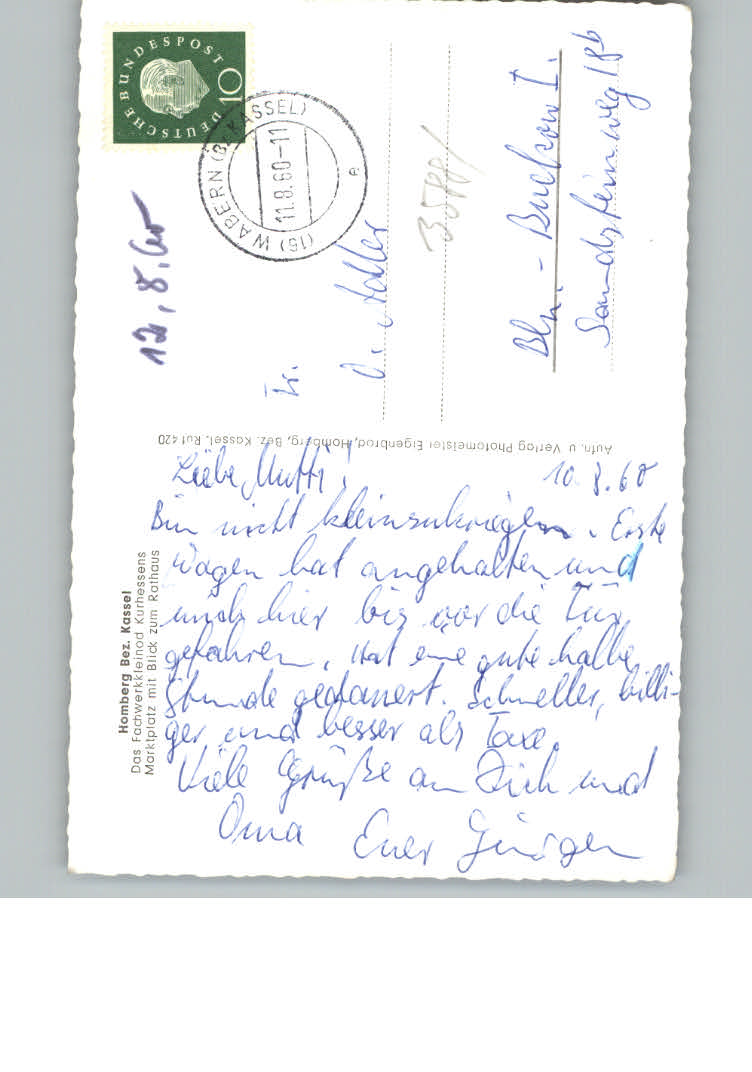 Liebe Mutti!
10.8.60
Bin nicht kleinzukriegen. Erste
Wagen hat angehalten und
mich hier bis vor die Tür
gefahren. Hat eine gute halbe
Stunde gedauert. Schneller, billi-
ger und besser als Taxe.
Viele Grüße an Dich und
Oma Euer Jürgen
Homberg Bez. Kassel
Das Fachwerkkleinod Kurhessens
Marktplatz mit Blick zum Rathaus
Aufn. u. Verlag Photomeister Eigenbrod, Homberg, Bez. Kassel, Ruf 420
DEUTSCHE BUNDESPOST
10
(16) WABERN (Bz KASSEL)
11.8.60-11
e
12.8.60
Fr.
O. Adler
Bln.-Buckow I.
Sandsteinweg 18b